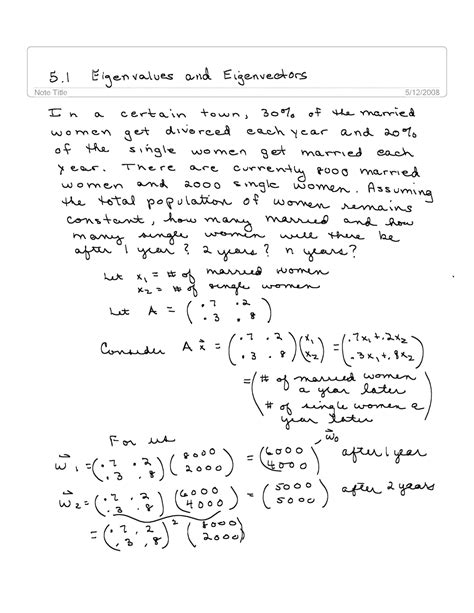 5.1 Eigenvalues and Eigenvectors
Note Title 5/12/2008
In a certain town, 30% of the married
women get divorced each year and 20%
of the single women get married each
year. There are currently 8000 married
women and 2000 single women. Assuming
the total population of women remains
constant, how many married and how
many single women will there be
after 1 year? 2 years? n years?
Let x₁ = # of married women
x₂ = # of single women
Let A = (.7 .2
.3 .8)
Consider A x⃗ = (.7 .2 (x₁ = (.7x₁+.2x₂
.3 .8) x₂) .3x₁+.8x₂)
= (# of married women
a year later
# of single women a
year later)
For us w⃗₀
w⃗₁ = (.7 .2 (8000 = (6000 after 1 year
.3 .8) 2000) 4000)
w⃗₂ = (.7 .2 (6000 = (5000 after 2 years
.3 .8) 4000) 5000)
= (.7 .2 ² (8000
.3 .8) 2000)